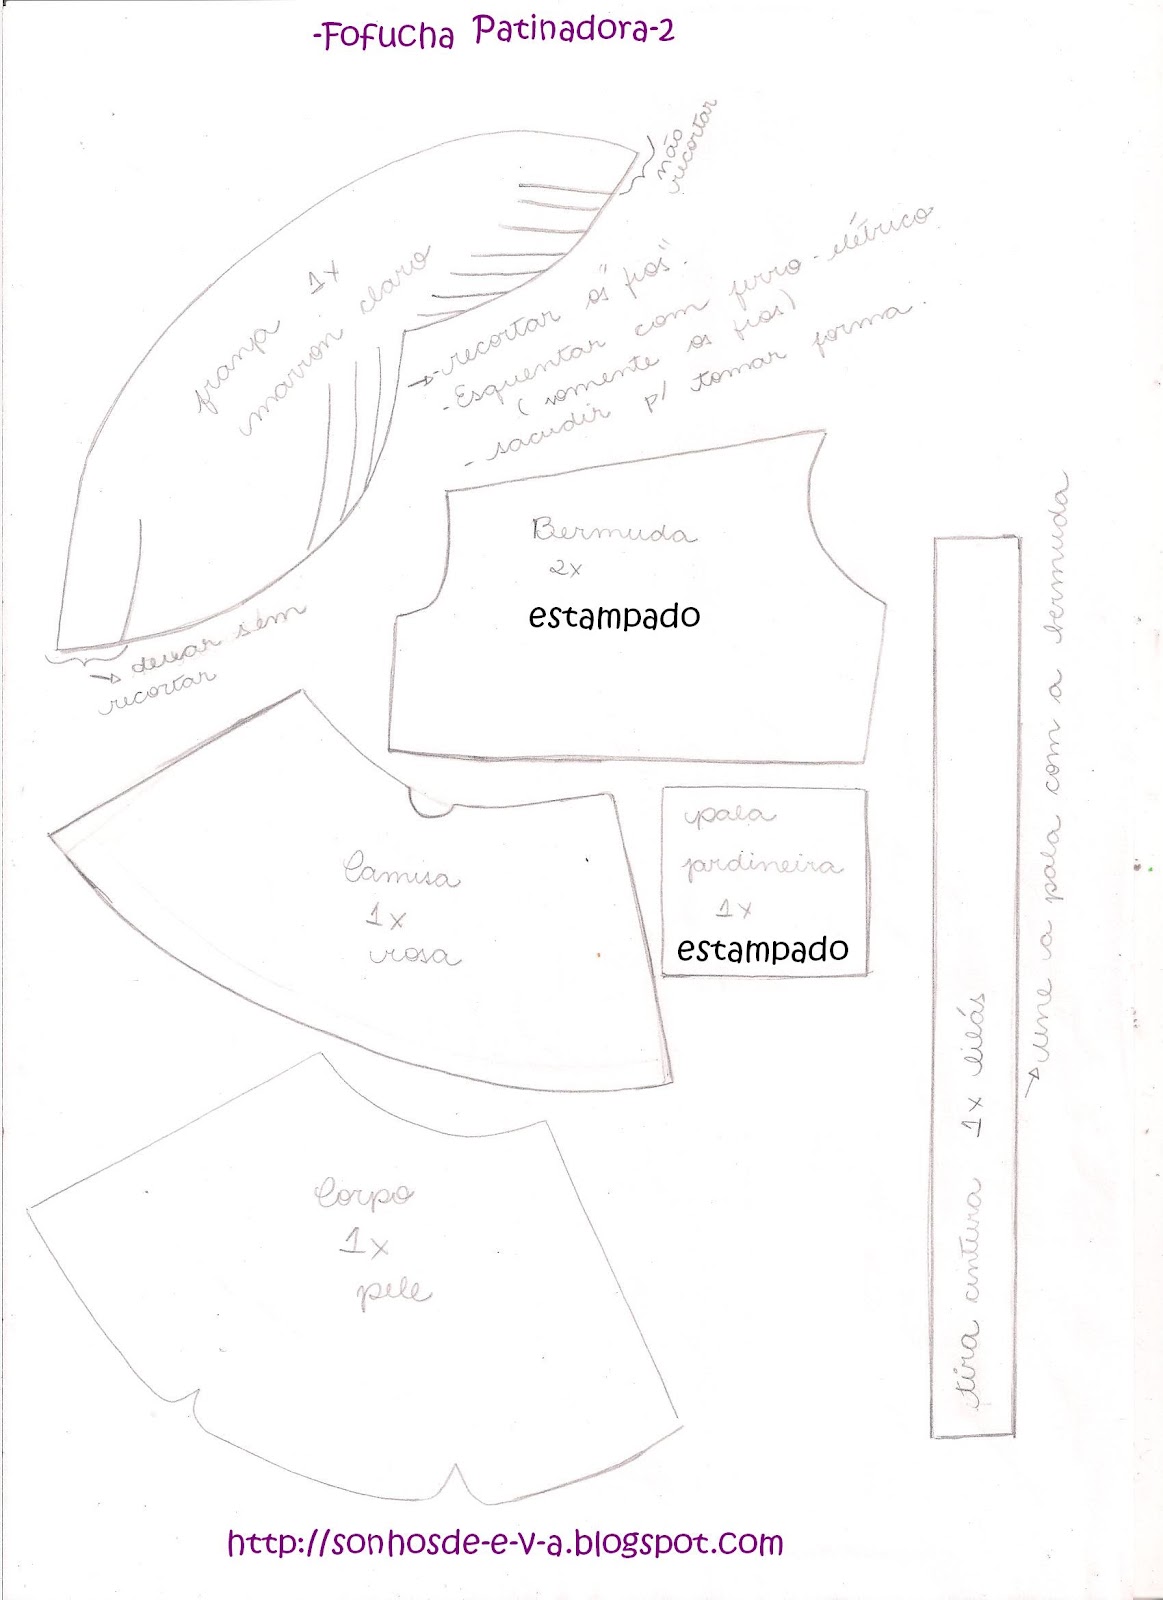 -Fofucha Patinadora-2
não
recortar
franja 1x
marron claro
-recortar os "fios".
-Esquentar com ferro-elétrico
(somente os fios)
- sacudir p/ tomar forma.
deixar sem
recortar
Bermuda
2x
estampado
pala
jardineira
1x
estampado
Camisa
1x
rosa
Corpo
1x
pele
tira cintura 1x lilás
une a pala com a bermuda
http://sonhosde-e-v-a.blogspot.com